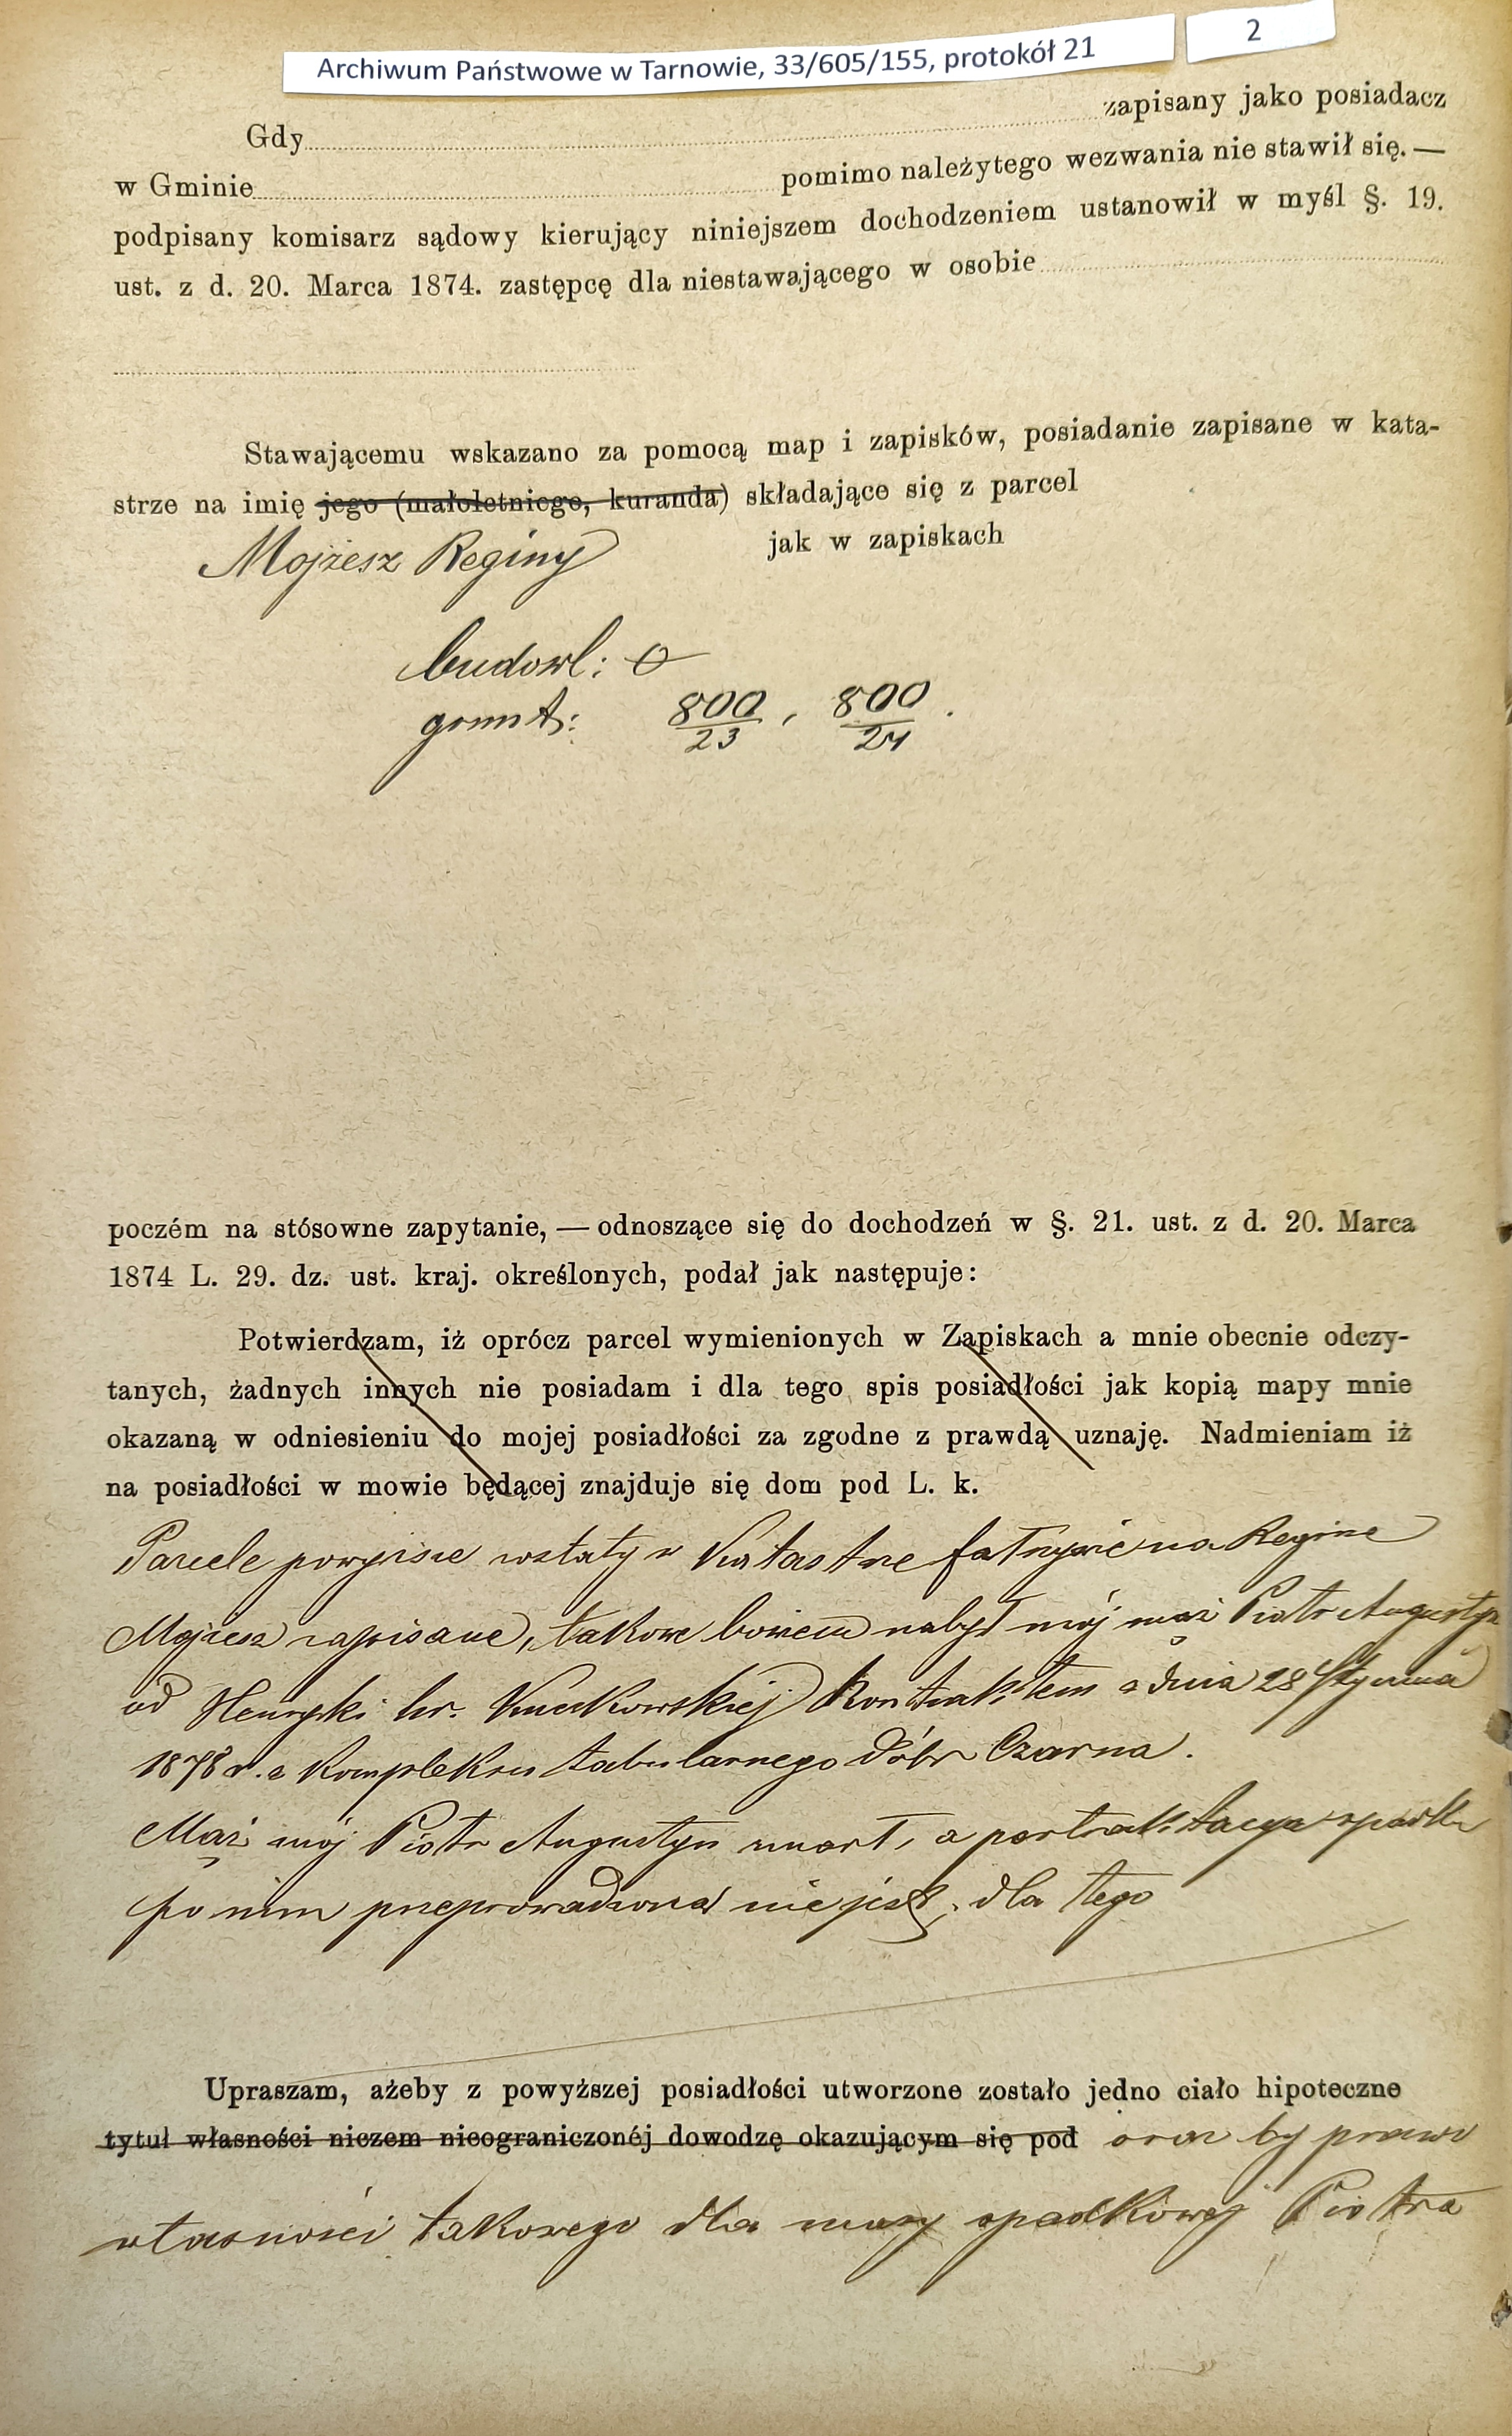 Archiwum Państwowe w Tarnowie, 33/605/155, protokół 21
2
Gdy zapisany jako posiadacz
w Gminie pomimo należytego wezwania nie stawił się. —
podpisany komisarz sądowy kierujący niniejszem dochodzeniem ustanowił w myśl §. 19.
ust. z d. 20. Marca 1874. zastępcę dla niestawającego w osobie
Stawającemu wskazano za pomocą map i zapisków, posiadanie zapisane w kata-
strze na imię jego (małoletniego, kuranda) składające się z parcel
Mojżesz Reginy jak w zapiskach
budowl: 0
grunt: 800/23, 800/24.
poczém na stósowne zapytanie, — odnoszące się do dochodzeń w §. 21. ust. z d. 20. Marca
1874 L. 29. dz. ust. kraj. określonych, podał jak następuje:
Potwierdzam, iż oprócz parcel wymienionych w Zapiskach a mnie obecnie odczy-
tanych, żadnych innych nie posiadam i dla tego spis posiadłości jak kopią mapy mnie
okazaną w odniesieniu do mojej posiadłości za zgodne z prawdą uznaję. Nadmieniam iż
na posiadłości w mowie będącej znajduje się dom pod L. k.
Parcele powyższe zostały w Katastrze fałszywie na Reginę
Mojżesz zapisane, takowe bowiem nabył mój mąż Piotr Augustyn
od Henryki hr. kontraktem z dnia 28 Stycznia
1878 r. z kompleksu tabularnego dóbr Czarna.
Mąż mój Piotr Augustyn umarł, a pertraktacya spadku
po nim przeprowadzona nie jest, dla tego
Upraszam, ażeby z powyższej posiadłości utworzone zostało jedno ciało hipoteczne
tytuł własności niczem nieograniczonéj dowodzę okazującym się pod oraz by prawo
własności takowego dla masy spadkowej Piotra